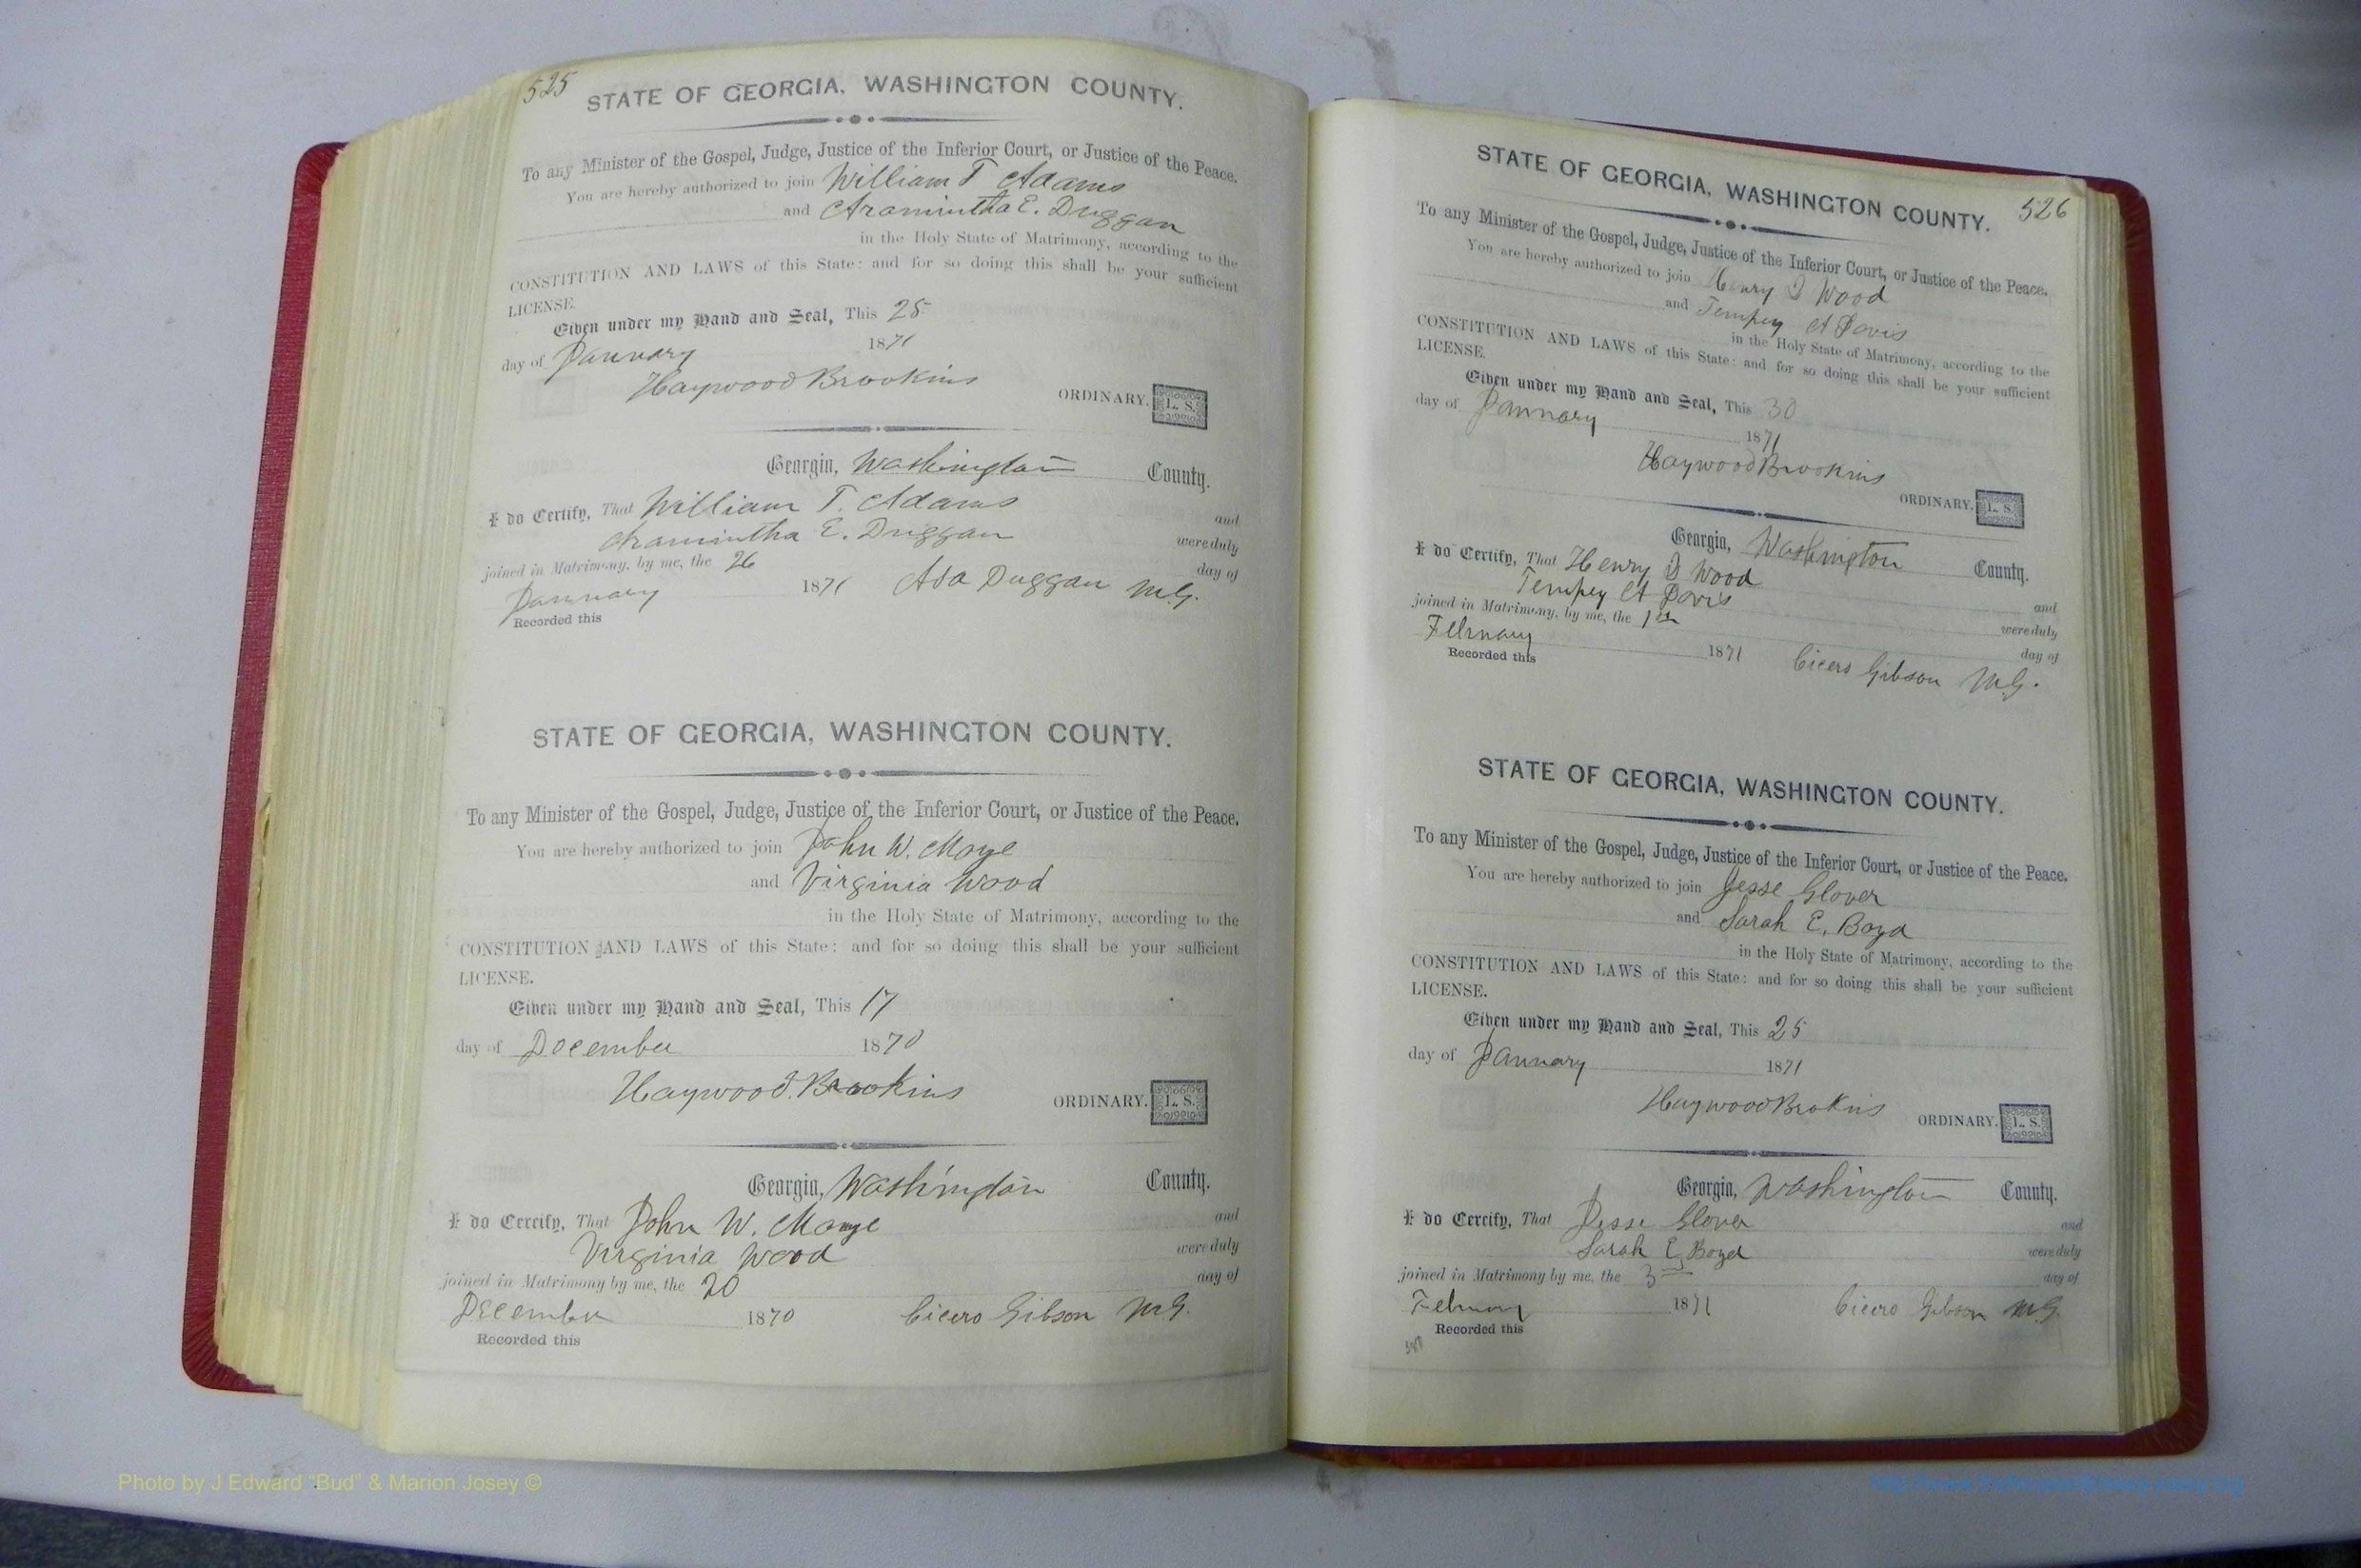 525
STATE OF GEORGIA, WASHINGTON COUNTY.
To any Minister of the Gospel, Judge, Justice of the Inferior Court, or Justice of the Peace.
You are hereby authorized to join William T Adams
and Aramintha E. Duggan
in the Holy State of Matrimony, according to the
CONSTITUTION AND LAWS of this State: and for so doing this shall be your sufficient
LICENSE.
Given under my Hand and Seal, This 25
day of January 1871
Haywood Brookins
ORDINARY. L. S.
Georgia, Washington County.
I do Certify, That William T. Adams and
Aramintha E. Duggan were duly
joined in Matrimony, by me, the 26 day of
January 1871 Asa Duggan M.G.
Recorded this
STATE OF GEORGIA, WASHINGTON COUNTY.
To any Minister of the Gospel, Judge, Justice of the Inferior Court, or Justice of the Peace.
You are hereby authorized to join John W. Moye
and Virginia Wood
in the Holy State of Matrimony, according to the
CONSTITUTION AND LAWS of this State: and for so doing this shall be your sufficient
LICENSE.
Given under my Hand and Seal, This 17
day of December 1870
Haywood Brookins
ORDINARY. L. S.
Georgia, Washington County.
I do Certify, That John W. Moye and
Virginia Wood were duly
joined in Matrimony by me, the 20 day of
December 1870 Cicero Gibson M.G.
Recorded this
526
STATE OF GEORGIA, WASHINGTON COUNTY.
To any Minister of the Gospel, Judge, Justice of the Inferior Court, or Justice of the Peace.
You are hereby authorized to join Henry J Wood
and Tempey A Davis
in the Holy State of Matrimony, according to the
CONSTITUTION AND LAWS of this State: and for so doing this shall be your sufficient
LICENSE.
Given under my Hand and Seal, This 30
day of January 1871
Haywood Brookins
ORDINARY. L. S.
Georgia, Washington County.
I do Certify, That Henry J Wood and
Tempey A Davis were duly
joined in Matrimony, by me, the 1st day of
February 1871 Cicero Gibson M.G.
Recorded this
STATE OF GEORGIA, WASHINGTON COUNTY.
To any Minister of the Gospel, Judge, Justice of the Inferior Court, or Justice of the Peace.
You are hereby authorized to join Jesse Glover
and Sarah E. Boyd
in the Holy State of Matrimony, according to the
CONSTITUTION AND LAWS of this State: and for so doing this shall be your sufficient
LICENSE.
Given under my Hand and Seal, This 25
day of January 1871
Haywood Brokins
ORDINARY. L. S.
Georgia, Washington County.
I do Certify, That Jesse Glover and
Sarah E Boyd were duly
joined in Matrimony by me, the 3 day of
February 1871 Cicero Gibson M.G.
Recorded this
Photo by J Edward "Bud" & Marion Josey ©